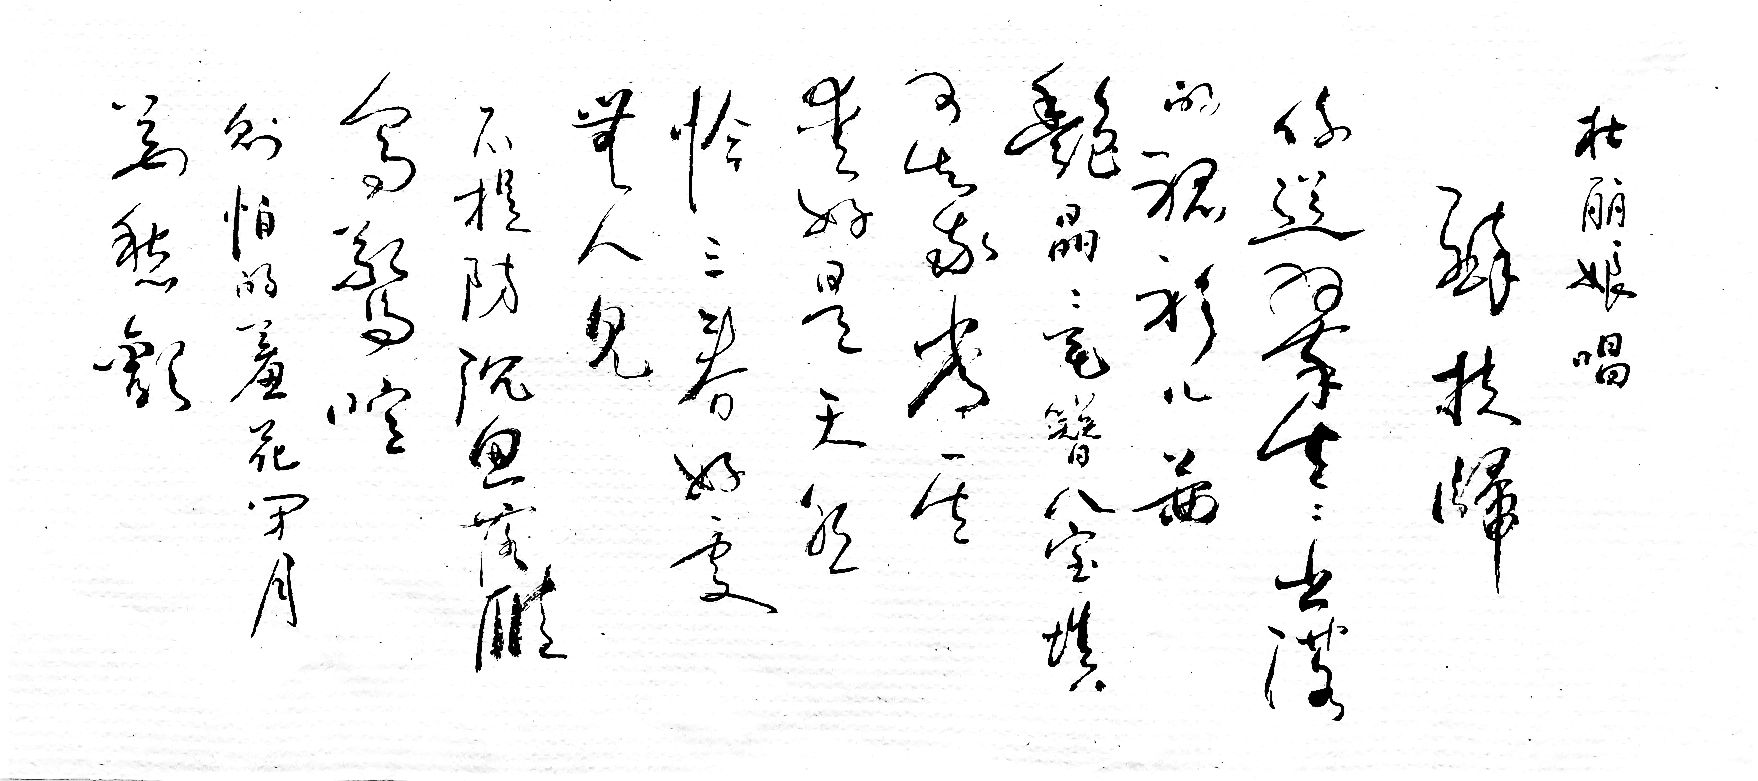 杜丽娘唱
醉扶歸
你道翠生〻出落
的裙衫儿茜
艷晶〻花簪八宝填
可知我常一生
爱好是天然
恰三春好處
無人見
不提防沉魚落雁
鳥驚喧
则怕的羞花闭月
花愁顫